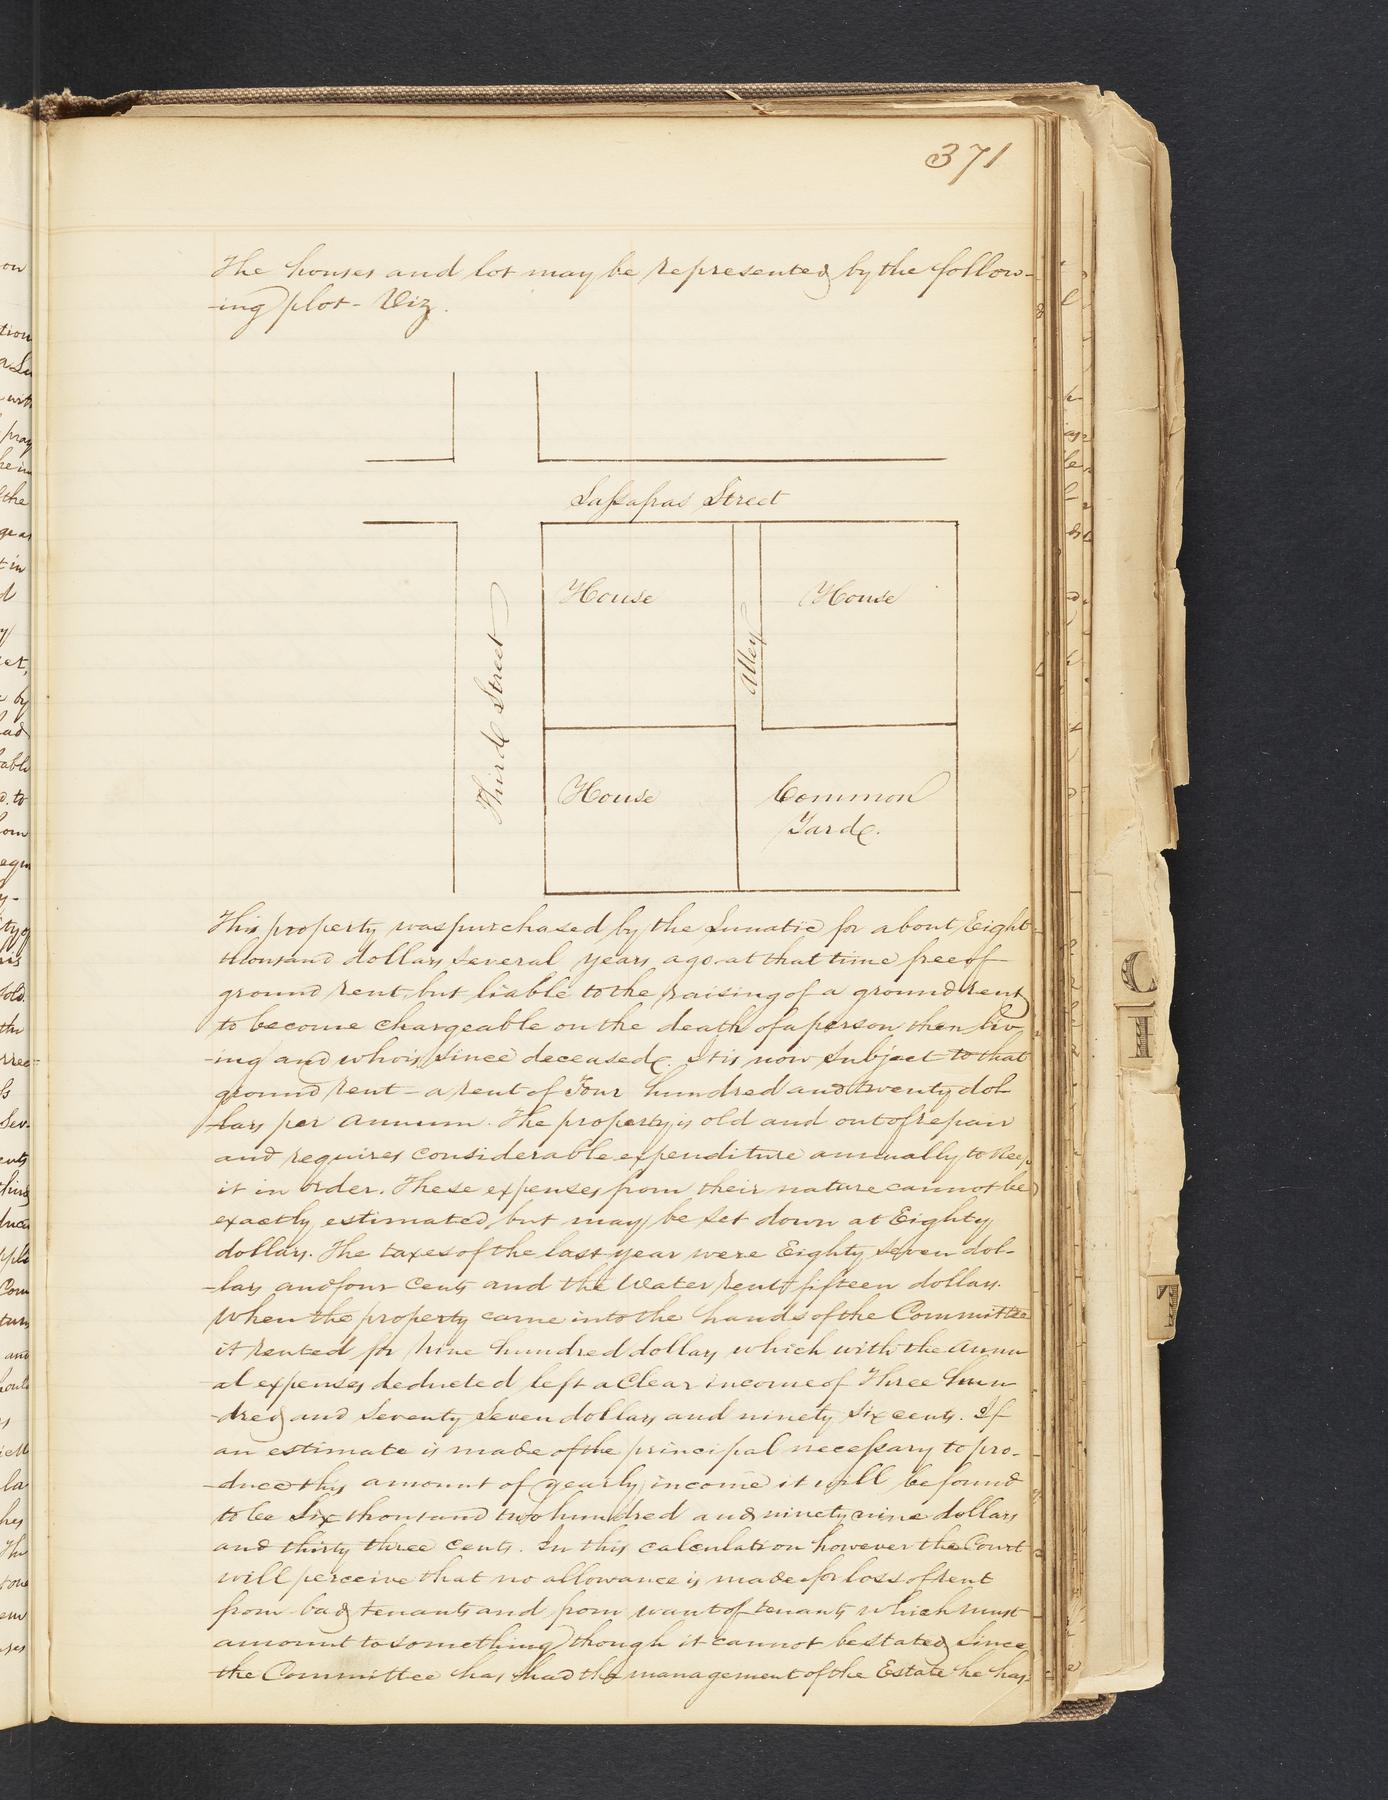 371
The houses and lot may be represented by the follow-
-ing plot - Viz.
Sassafras Street
House
House
Alley
Third Street
House
Common
Yard.
This property was purchased by the Lunatic for about Eight
thousand dollars several years ago at that time free of
ground rent, but liable to the raising of a ground rent
to become chargeable on the death of a person then liv-
-ing and who is since deceased. It is now subject to that
ground rent - a rent of Four hundred and twenty dol-
-lars per annum. The property is old and out of repair
and requires considerable expenditure annually to keep
it in order. These expenses from their nature cannot be
exactly estimated, but may be set down at Eighty
dollars. The taxes of the last year were Eighty seven dol-
-lars and four cents and the Water rent fifteen dollars.
When the property came into the hands of the Committee
it rented for nine hundred dollars which with the annu
-al expenses deducted left a clear income of Three hun-
-dred and seventy seven dollars and ninety six cents. If
an estimate is made of the principal necessary to pro-
-duce this amount of yearly income it will be found
to be Six thousand two hundred and ninety nine dollars
and thirty three cents. In this calculation however the Court
will perceive that no allowance is made for loss of rent
from bad tenants and from want of tenants which must
amount to something though it cannot be stated. Since
the Committee has had the management of the Estate he has
C
I
T